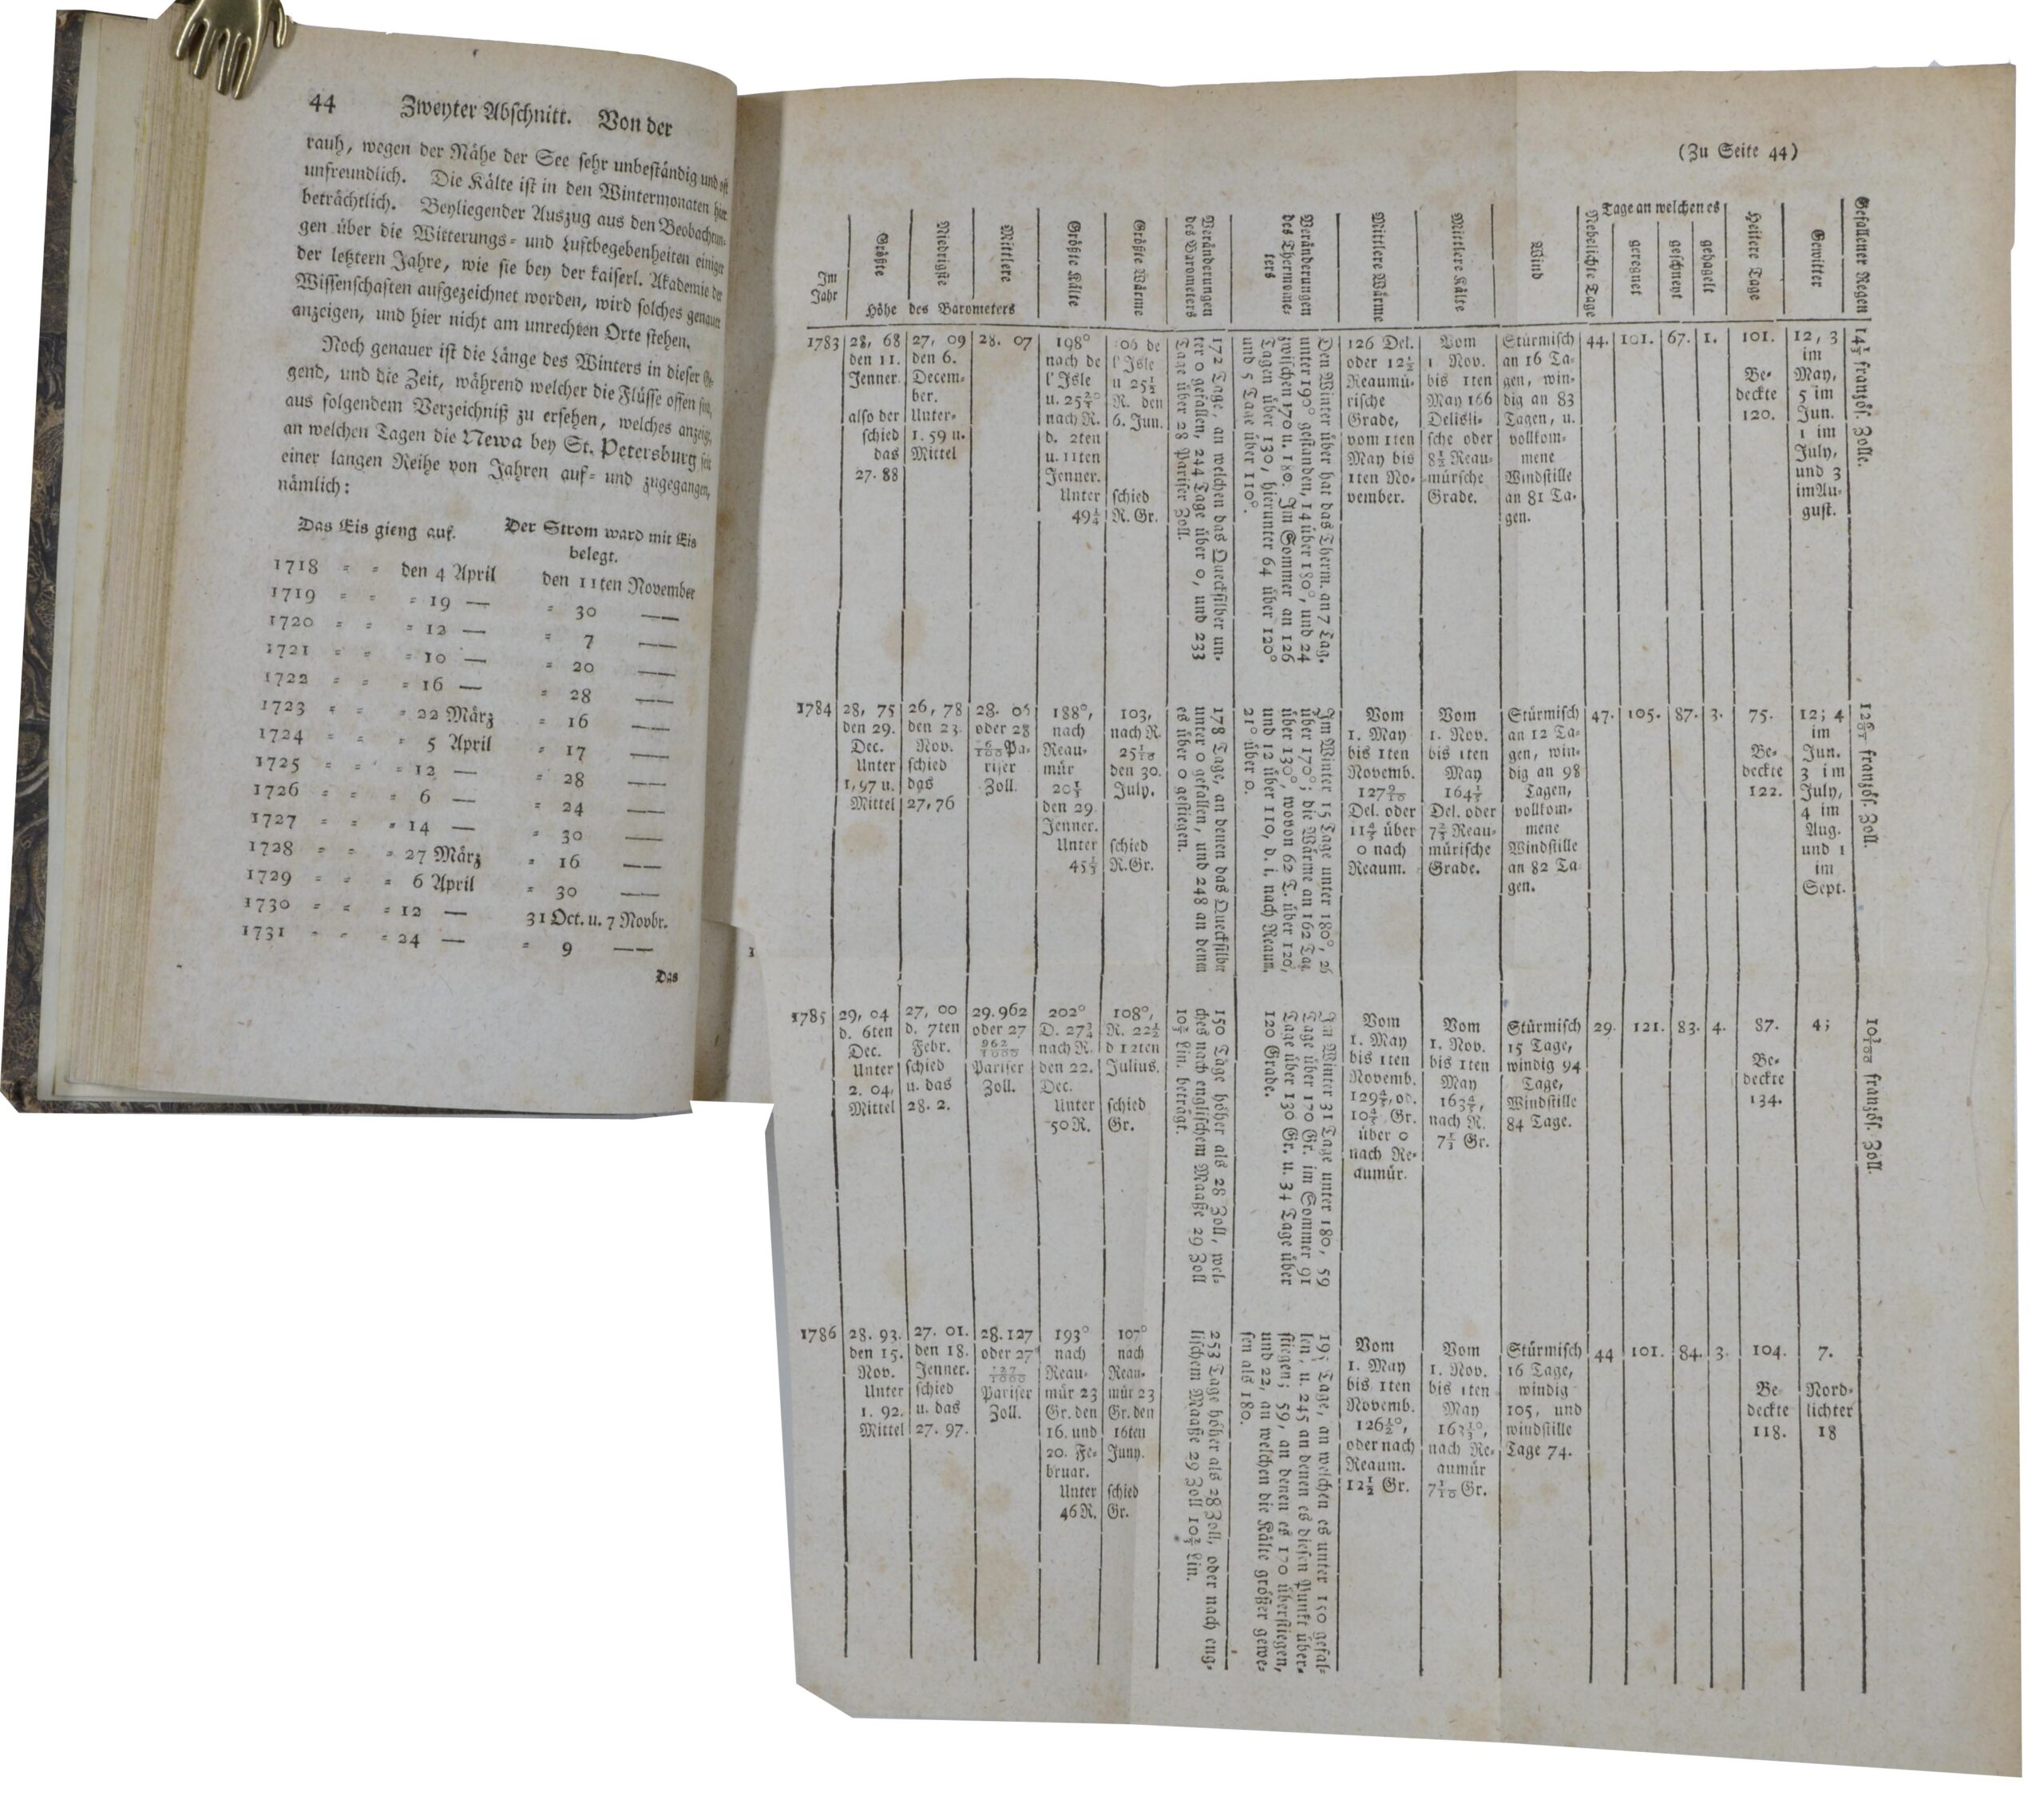 44 Zweyter Abschnitt. Von der
rauh, wegen der Nähe der See sehr unbeständig und oft
unfreundlich. Die Kälte ist in den Wintermonaten hier
beträchtlich. Beyliegender Auszug aus den Beobachtun-
gen über die Witterungs- und Luftbegebenheiten einiger
der letztern Jahre, wie sie bey der kaiserl. Akademie der
Wissenschaften aufgezeichnet worden, wird solches genauer
anzeigen, und hier nicht am unrechten Orte stehen.
Noch genauer ist die Länge des Winters in dieser Ge-
gend, und die Zeit, während welcher die Flüsse offen sind,
aus folgendem Verzeichniß zu ersehen, welches anzeigt,
an welchen Tagen die Newa bey St. Petersburg seit
einer langen Reihe von Jahren auf- und zugegangen,
nämlich:
Das Eis gieng auf. Der Strom ward mit Eis
belegt.
1718 = = den 4 April den 11ten November
1719 = = = 19 — = 30 —
1720 = = = 12 — = 7 —
1721 = = = 10 — = 20 —
1722 = = = 16 — = 28 —
1723 = = = 22 März = 16 —
1724 = = = 5 April = 17 —
1725 = = = 12 — = 28 —
1726 = = = 6 — = 24 —
1727 = = = 14 — = 30 —
1728 = = = 27 März = 16 —
1729 = = = 6 April = 30 —
1730 = = = 12 — 31 Oct. u. 7 Novbr.
1731 = = = 24 — = 9 —
Das
(Zu Seite 44)
Im
Jahr
Größte
Niedrigste
Mittlere
Höhe des Barometers
Größte Kälte
Größte Wärme
Veränderungen
des Barometers
Veränderungen
des Thermome-
ters
Mittlere Wärme
Mittlere Kälte
Wind
Nebelichte Tage
Tage an welchen es
geregnet
geschneyt
gehagelt
Heitere Tage
Gewitter
Gefallener Regen
1783
28, 68
den 11.
Jenner.
also der
schied
das
27. 88
27, 09
den 6.
Decem-
ber.
Unter-
1. 59 u.
Mittel
28. 07
198°
nach de
l'Isle
nach R.
d. 2ten
u. 11ten
Jenner.
Unter schied
49¼ R. Gr.
106 de
l'Isle
u 25½
R. den
6. Jun.
172 Tage, an welchen das Quecksilber un-
ter 0 gefallen, 244 Tage über 0, und 233
Tage über 28 Pariser Zoll.
Den Winter über hat das Therm. an 7 Tag.
unter 190° gestanden, 14 über 180°, und 24
zwischen 170 u. 180. Im Sommer an 126
Tagen über 130, hierunter 64 über 120°
und 5 Tage über 110°.
126 Del.
oder 12½
Reaumü-
rische
Grade,
vom 1ten
May bis
1ten No-
vember.
Vom
1. Nov.
bis 1ten
May 166
Delisli-
sche oder
8½ Reau-
mürsche
Grade.
Stürmisch
an 16 Ta-
gen, win-
dig an 83
Tagen, u.
vollkom-
mene
Windstille
an 81 Ta-
gen.
44.
101.
67.
1.
101.
Be-
deckte
120.
12, 3
im
May,
5 im
Jun.
1 im
July,
und 3
im Au-
gust.
französ. Zolle.
1784
28, 75
den 29.
Dec.
Unter
1,97 u.
Mittel
26, 78
den 23.
Nov.
schied
das
27, 76
28. 06
oder 28
6/100 Pa-
riser
Zoll.
188°,
nach
Reau-
mür
den 29.
Jenner.
Unter schied
R.Gr.
103,
nach R.
den 30.
July.
178 Tage, an denen das Quecksilber
unter 0 gefallen, und 248 an denen
es über 0 gestiegen.
Im Winter 15 Tage unter 180°, 26
über 170°; die Wärme an 162 Tag.
über 130°, wovon 62 T. über 120,
und 12 über 110, d. i. nach Reaum.
21° über 0.
Vom
1. May
bis 1ten
Novemb.
127 9/10
Del. oder
über
0 nach
Reaum.
Vom
1. Nov.
bis 1ten
May
Del. oder
Reau-
mürische
Grade.
Stürmisch
an 12 Ta-
gen, win-
dig an 98
Tagen,
vollkom-
mene
Windstille
an 82 Ta-
gen.
47.
105.
87.
3.
75.
Be-
deckte
122.
12; 4
im
Jun.
3 im
July,
4 im
Aug.
und 1
im
Sept.
französ. Zoll.
1785
29, 04
d. 6ten
Dec.
Unter
2. 04,
Mittel
27, 00
d. 7ten
Febr.
schied
u. das
28. 2.
29.962
oder 27
962/1000
Pariser
Zoll.
202°
D. 27¾
nach R.
den 22.
Dec.
Unter schied
50 R. Gr.
108°,
R. 22½
d 12ten
Julius.
150 Tage höher als 28 Zoll, wel-
ches nach englischem Maaße 29 Zoll
Lin. beträgt.
Im Winter 31 Tage unter 180, 59
Tage über 170 Gr. im Sommer 91
Tage über 130 Gr. u. 34 Tage über
120 Grade.
Vom
1. May
bis 1ten
Novemb.
129⅘, od.
10⅘ Gr.
über 0
nach Re-
aumür.
Vom
1. Nov.
bis 1ten
May
163⅘,
nach R.
Gr.
Stürmisch
15 Tage,
windig 94
Tage,
Windstille
84 Tage.
29.
121.
83.
4.
87.
Be-
deckte
134.
4;
französ. Zoll.
1786
28. 93.
den 15.
Nov.
Unter
1. 92.
Mittel
27. 01.
den 18.
Jenner.
schied
u. das
27. 97.
28.127
oder 27
127/1000
Pariser
Zoll.
193°
nach
Reau-
mür 23
Gr. den
16. und
20. Fe-
bruar.
Unter schied
46 R. Gr.
107°
nach
Reau-
mür 23
Gr. den
16ten
Juny.
253 Tage höher als 28 Zoll, oder nach eng-
lischem Maaße 29 Zoll Lin.
Tage, an welchen es unter 150 gefal-
len, u. 245 an denen es diesen Punkt über-
stiegen; 59, an denen es 170 überstiegen,
und 22, an welchen die Kälte größer gewe-
sen als 180.
Vom
1. May
bis 1ten
Novemb.
126½°,
oder nach
Reaum.
12½ Gr.
Vom
1. Nov.
bis 1ten
May
nach Re-
aumür
7 1/10 Gr.
Stürmisch
16 Tage,
windig
105, und
windstille
Tage 74.
44
101.
84.
3.
104.
Be-
deckte
118.
7.
Nord-
lichter
18